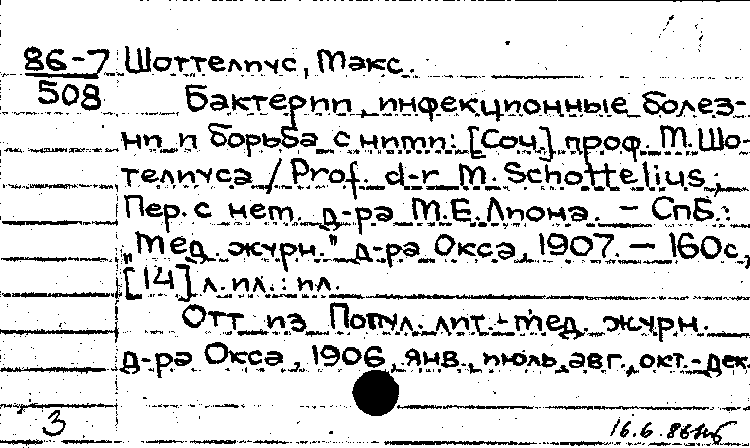 86-7 Шоттелиус, Макс.
508 Бактерии, инфекционные болез-
ни и борьба с ними: [Соч.] проф. М. Шо-
телиуса / Prof. d-r M. Schottelius;
Пер. с нем. д-ра М.Е. Лиона. - СПб.:
"Мед. журн." д-ра Окса, 1907. - 160с,
[14] л. ил.: ил.
Отт из Попул. лит.-мед. журн.
д-ра Окса, 1906, янв., июль, авг., окт.-дек.
3 16.6.86